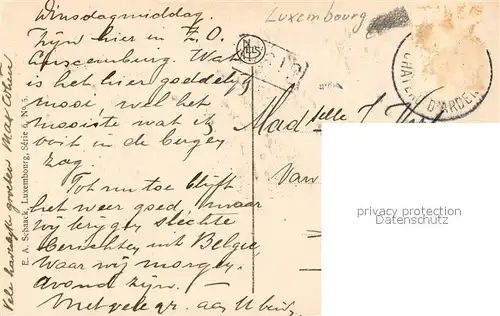 Dinsdagmiddag.
Zijn hier in Z.O.
Luxemburg. Wat
is het hier goddelijk
mooi, wel het
mooiste wat ik
ooit in de bergen
zag.
Tot nu toe blijft
het weer goed, maar
wij krijgen slechte
berichten uit België,
waar wij morgen-
avond zijn.
Met vele gr. aan U beiden
Vele hartelijke groeten Max Cohen
E. A. Schaack, Luxembourg, Série 6, No 5.
Luxembourg
NELS
D'ARDEN
Madselle J.
Van
privacy protection
watermark